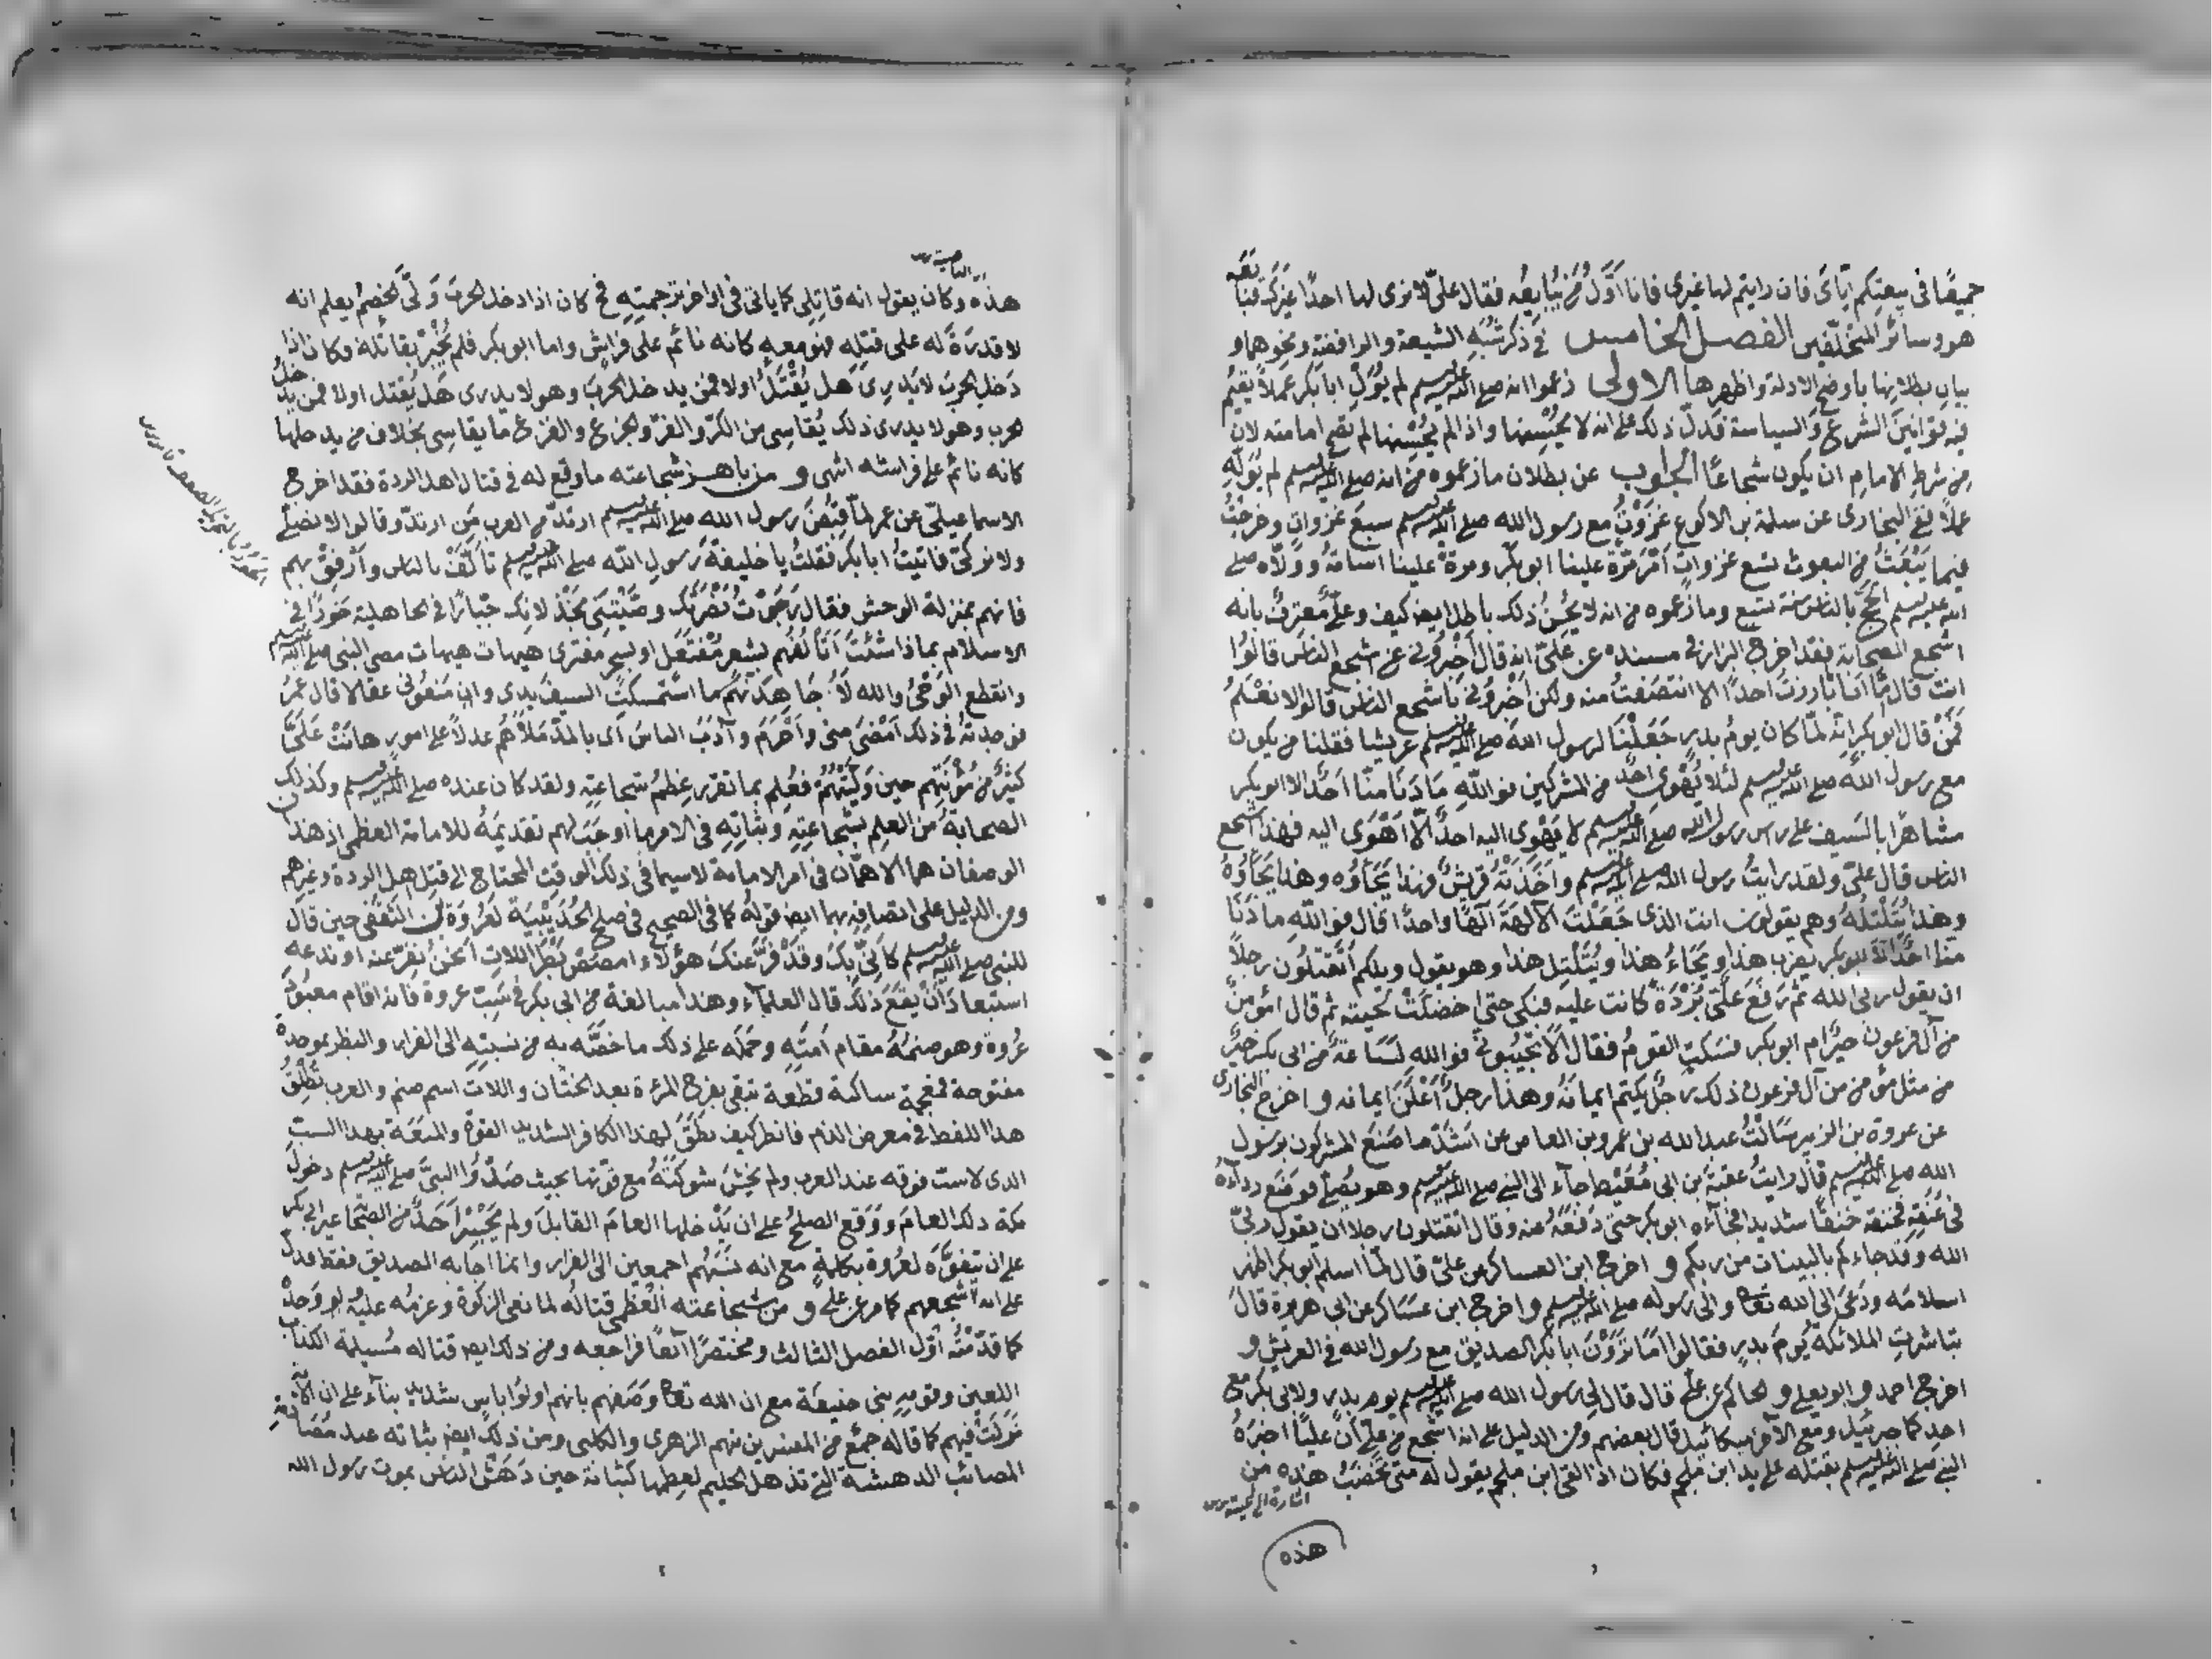 جميعًا في بيعتكم اياى فان رايتم لها غيرى فانا اول من يبايعه فقال علىّ لا نرى لها احدًا غيرك فبايعه
هو وسائر المتخلفين الفصل الخامس في ذكر شبه الشيعة والرافضة ونحوهما و
بيان بطلانها باوضح الادلة واظهرها الاولى زعموا انه صلى الله عليه وسلم لم يولّ ابا بكر عملاً يقيم
فيه قوانين الشرع والسياسة فدلّ ذلك على انه لا يحسنها واذا لم يحسنها لم تصح امامته لان
من شرط الامام ان يكون شجاعًا الجواب عن بطلان ما زعموه من انه صلى الله عليه وسلم لم يولّه
عملاً ففى البخارى عن سلمة بن الاكوع غزوت مع رسول الله صلى الله عليه وسلم سبع غزوات وخرجت
فيما يبعث من البعوث تسع غزوات مرة علينا ابو بكر ومرة علينا اسامة وولاّه صلى
الله عليه وسلم الحج بالناس سنة تسع وما زعموه من انه لا يحسن ذلك باطل ايض كيف وعلىّ معترف بانه
اشجع الصحابة فقد اخرج البزار في مسنده عن علىّ انه قال اخبرونى عن اشجع الناس قالوا
انت قال امّا انا ما بارزت احدًا الا انتصفت منه ولكن اخبرونى باشجع الناس قالوا لا نعلم
فمن قال ابو بكر انه لمّا كان يوم بدر جعلنا لرسول الله صلى الله عليه وسلم عريشا فقلنا من يكون
مع رسول الله صلى الله عليه وسلم لئلا يهوى احد من المشركين فوالله ما دنا منّا احد الا ابو بكر
شاهرًا بالسيف على راس رسول الله صلى الله عليه وسلم لا يهوى اليه احدٌ الاّ اهوى اليه فهذا اشجع
الناس قال علىّ ولقد رايت رسول الله صلى الله عليه وسلم واخذته قريش فهذا يجأؤه وهذا يجأؤه
وهذا يتلتله وهم يقولون انت الذى جعلت الآلهة الهًا واحدًا قال فوالله ما دنا
منا احد الا ابو بكر يضرب هذا ويجاء هذا ويتلتل هذا وهو يقول ويلكم أتقتلون رجلاً
ان يقول ربى الله ثم رفع علىّ بردة كانت عليه فبكى حتى اخضلت لحيته ثم قال أمؤمن
من آل فرعون خير ام ابو بكر فسكت القوم فقال الا تجيبونى فوالله لساعة من ابى بكر خير
من مثل مؤمن من آل فرعون ذلك رجل يكتم ايمانه وهذا رجل أعلن ايمانه و اخرج البخارى
عن عروة بن الزبير سالت عبد الله بن عمرو بن العاص عن اشد ما صنع المشركون برسول
الله صلى الله عليه وسلم قال رايت عقبة بن ابى معيط جاء الى النبى صلى الله عليه وسلم وهو يصلى فوضع رداءه
في عنقه فخنقه خنقًا شديدا فجاءه ابو بكر حتى دفعه عنه وقال اتقتلون رجلا ان يقول ربىّ
الله وقد جاءكم بالبينات من ربكم و اخرج ابن العساكر عن علىّ قال لمّا اسلم ابو بكر اظهر
اسلامه ودعى الى الله تعالى والى رسوله صلى الله عليه وسلم و اخرج ابن عساكر عن ابى هريرة قال
تباشرت الملائكة يوم بدر فقالوا اما ترون ابا بكر الصديق مع رسول الله في العريش و
اخرج احمد و ابو يعلى و الحاكم عن على قال قال لى رسول الله صلى الله عليه وسلم يوم بدر ولابى بكر مع
احد كما جبرئيل ومع الآخر ميكائيل قال بعضهم ومن الدليل على انه اشجع من على أن عليًا اخبره
النبى صلى الله عليه وسلم بقتله على يد ابن ملجم فكان اذا لقى ابن ملجم يقول له متى تخضب هذه من
اشارة الى لحيته
هذه
الناصية
هذه وكان يقول انه قاتلى كما ياتى في اواخر ترجمته فح كان اذا دخل الحرب ولقى الخصم يعلم انه
لا قدرة له على قتله فهو معه كانه نائم على فراش واما ابو بكر فلم يخبر بقاتله فكان اذا
دخل الحرب لا يدرى هل يقتل اولا فمن يدخل الحرب وهو لا يدرى هل يقتل اولا فمن يدخل
الحرب وهو لا يدرى ذلك يقاسى من الكرّ والفرّ والجزع والفزع ما يقاسى بخلاف من يدخلها
كانه نائم على فراشه انتهى و من باهر شجاعته ما وقع له في قتال اهل الردة فقد اخرج
الاسماعيلىّ عن عمر لمّا قبض رسول الله صلى الله عليه وسلم ارتدّ من العرب من ارتدّ وقالوا لا نصلى
ولا نزكى فاتيت ابا بكر فقلت يا خليفة رسول الله صلى الله عليه وسلم تألّف الناس وارفق بهم
فانهم بمنزلة الوحش فقال رجوت نصرتك وجئتنى بخذلانك جبارًا في الجاهلية خوارًا في
الاسلام بماذا شئت أتألفهم بشعر مفتعل او بسحر مفترى هيهات هيهات مضى النبى صلى الله عليه وسلم
وانقطع الوحى والله لأجاهدنهم ما استمسك السيف بيدى وان منعونى عقالا قال عمر
فوجدته في ذلك امضى منى واحزم وآدب الناس اى بالمدّ على امور هانت علىّ
كثير من مؤنتهم حين وليتهم فعلم بما تقرر عظم شجاعته ولقد كان عنده صلى الله عليه وسلم وكذلك
الصحابة من العلم بشجاعته وثباته في الامر ما اوجب لهم تقديمه للامامة العظمى اذ هذان
الوصفان هما الاهمّان في امر الامامة لاسيما في ذلك الوقت المحتاج الى قتل اهل الردة وغيرهم
ومن الدليل على اتصافه بهما ايض قوله كما في الصحيح في صلح الحديبية لعروة بن الثقفى حين قال
للنبى صلى الله عليه وسلم كأنّى بك وقد فرّ عنك هؤلاء امصص بظر اللات أنحن نفرّ عنه او ندعه
استبعاد أن يقع ذلك قال العلماء وهذا مبالغة من ابى بكر في سبّ عروة فانه اقام معبود
عروة وهو صنمه مقام امّه وحمله على ذلك ما خصّه به من نسبته الى الفرار والبظر بموحدة
مفتوحة فمعجمة ساكنة قطعة تبقى بفرج المرءة بعد الختان واللات اسم صنم والعرب تطلق
هذا اللفظ في معرض الذم فانظر كيف نطق لهذا الكافر الشديد القوة والمنعة بهذا السبّ
الذى لا سبّ فوقه عند العرب ولم يخش شوكته مع قوتها بحيث صدّوا النبىّ صلى الله عليه وسلم دخول
مكة ذلك العام ووقع الصلح على ان يدخلها العام القابل ولم يجسر احد من الصحابة غير ابى بكر
على ان يتفوّه لعروة بكلمة مع انه نسبهم اجمعين الى الفرار وانما اجابه الصديق فقط فدلّ
على انه اشجعهم كما مر عن على و من شجاعته العظمى قتاله لمانعى الزكوة وعزمه عليه لو وحده
كما قدّمته اوّل الفصل الثالث ومختصرًا آنفًا فراجعه ومن ذلك ايض قتاله مسيلمة الكذاب
اللعين وقومه بنى حنيفة مع ان الله تعالى وصفهم بانهم اولوا باس شديد بناء على ان الآية
نزلت فيهم كما قاله جمع من المفسرين منهم الزهرى والكلبى ومن ذلك ايض ثباته عند مصادمة
المصائب الدهشة التى تذهل الحليم لعظمها كثباته حين دهش الناس بموت رسول الله